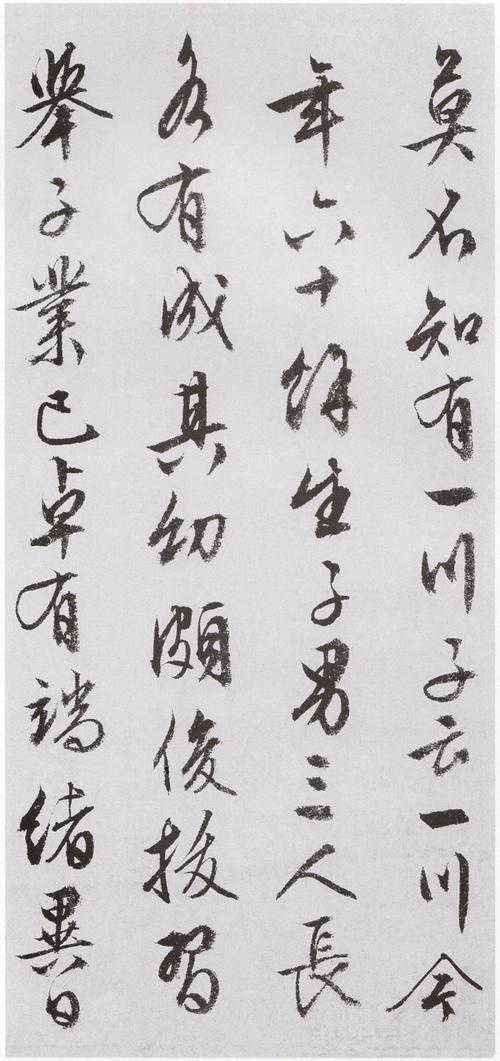 莫不知有一川子云一川今
年六十餘生子男三人長
多有成其幼頗俊拔習
舉子業已卓有端緒異日